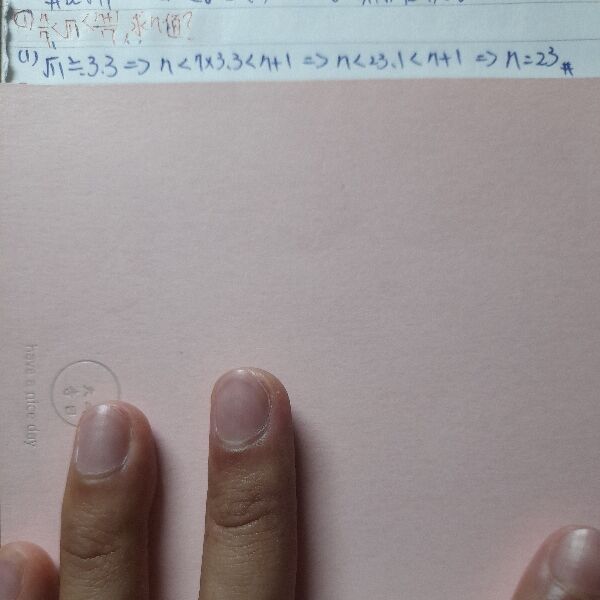 (1) n/7 < √11 < n+1/7, 求n值?
(1) √11 ≒ 3.3 => n < 7×3.3 < n+1 => n < 23.1 < n+1 => n = 23 #
have a nice day